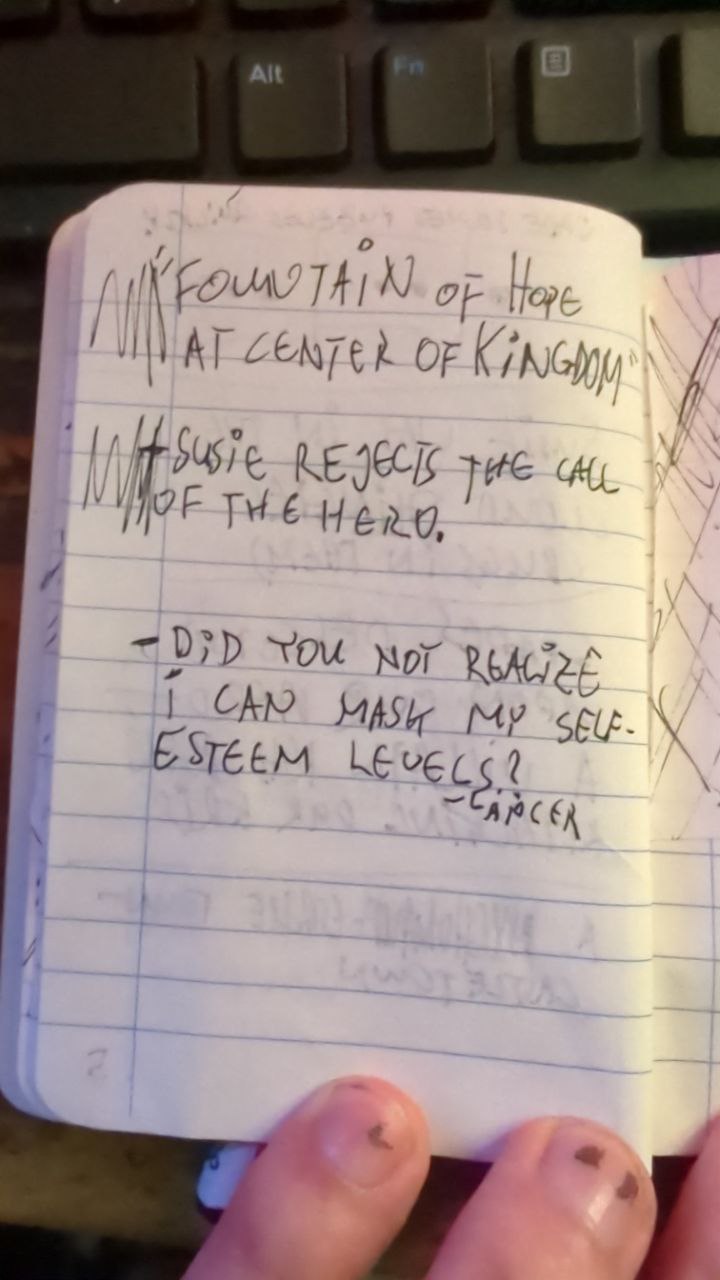 Alt
Fn
"FOUNTAIN OF HOPE
AT CENTER OF KINGDOM"
SUSIE REJECTS THE CALL
OF THE HERO.
- DID YOU NOT REALIZE
I CAN MASK MY SELF-
ESTEEM LEVELS?
- LANCER